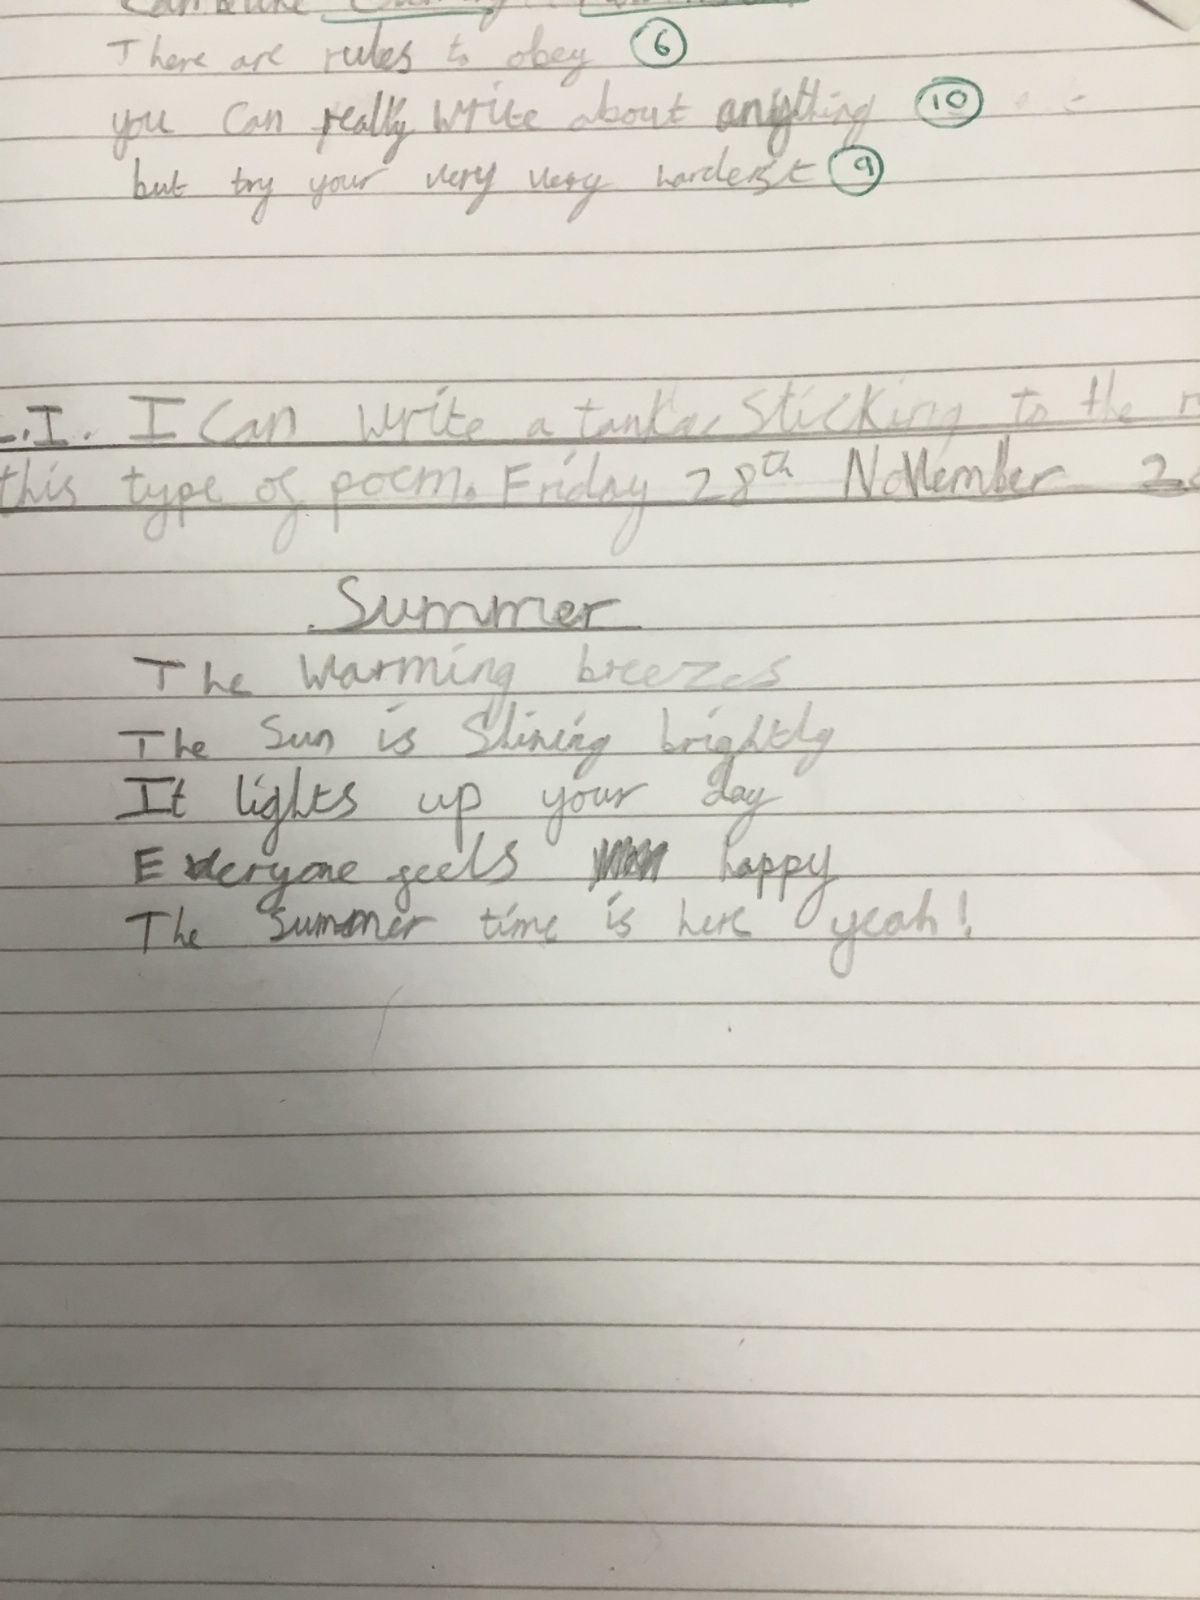 There are rules to obey 6
you can really write about anything 10
but try your very very hardest 9
L.I. I can write a tanka sticking to the
this type of poem. Friday 28th November 2
Summer
The warming breezes
The sun is shining brightly
It lights up your day
Everyone feels happy
The summer time is here yeah!